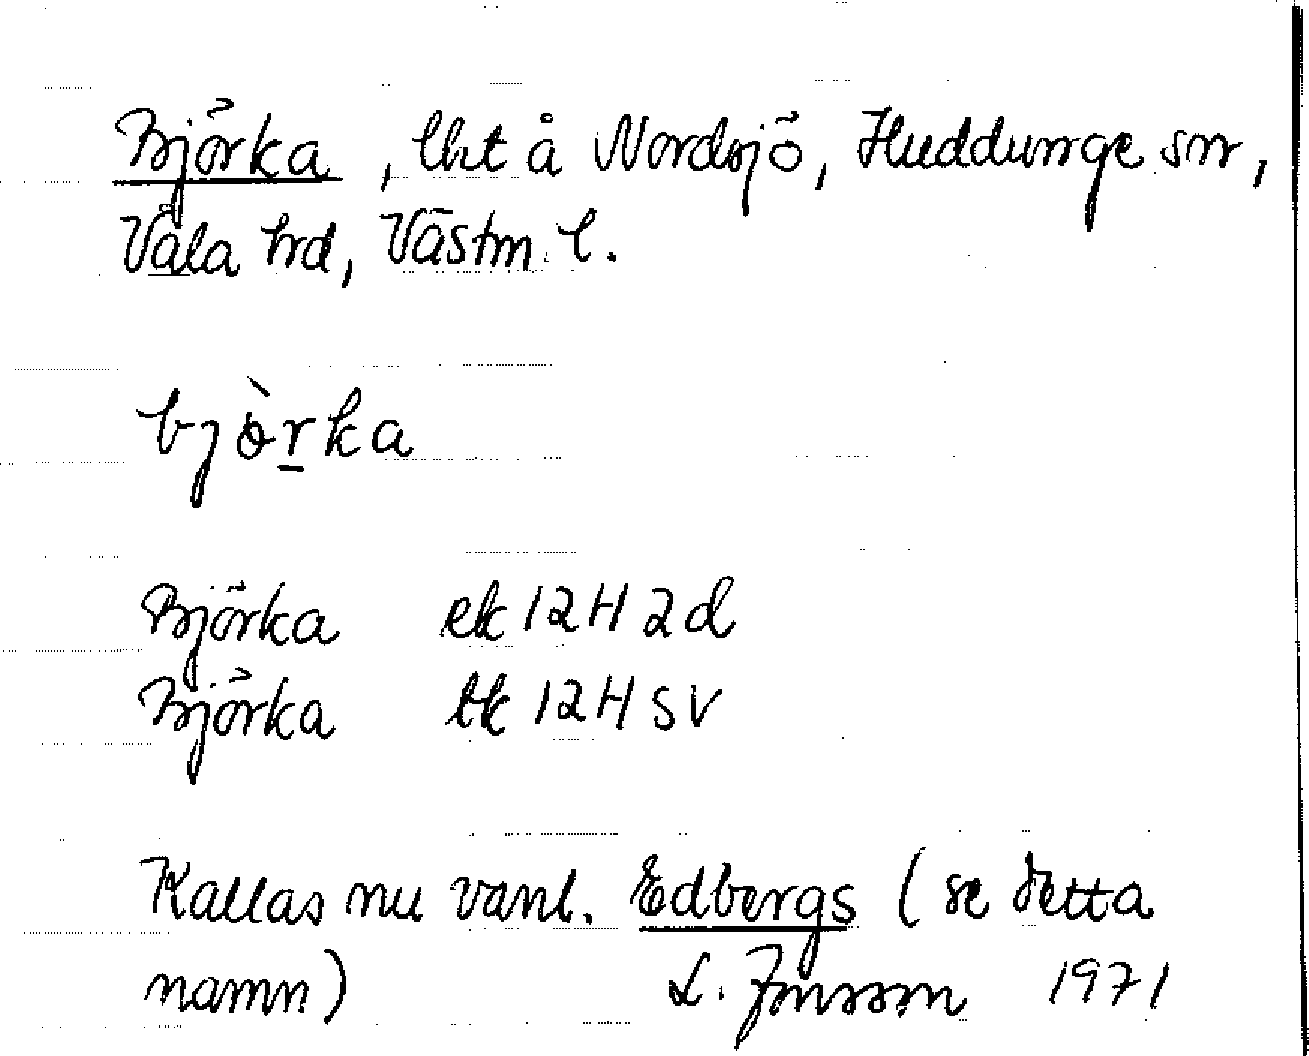 Björka, lht å Nordsjö, Huddunge sn,
Våla hd, Västm l.
bjö̀r̲ka
Björka ek 12H2d
Björka tk 12HSV
Kallas nu vanl. Edbergs (se detta
namn) L. Jonsson 1971